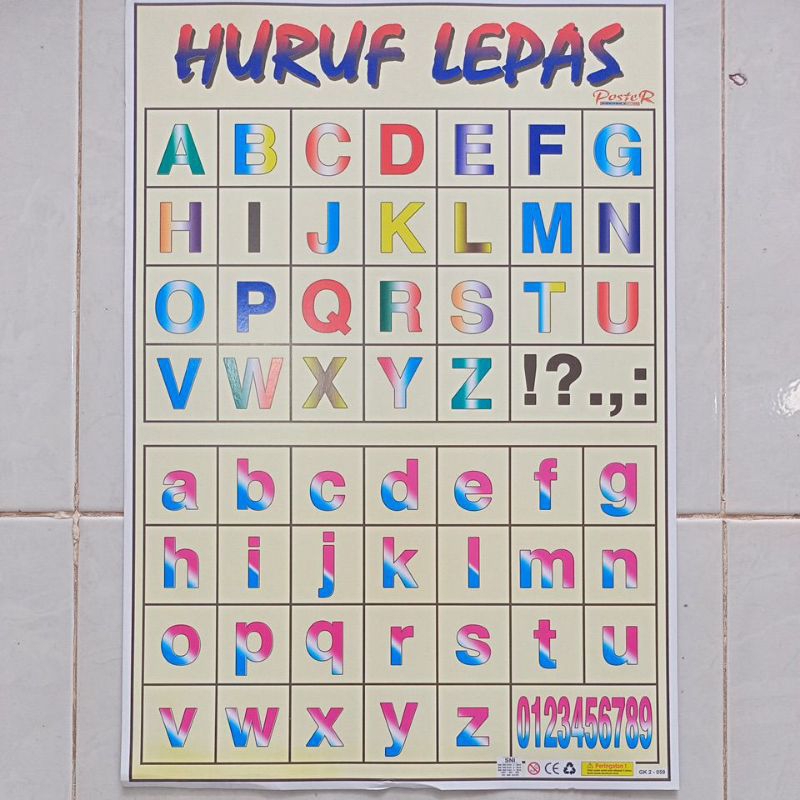 HURUF LEPAS
PosteR
A B C D E F G
H I J K L M N
O P Q R S T U
V W X Y Z !?.,:
a b c d e f g
h i j k l m n
o p q r s t u
v w x y z 0123456789
SNI CE Peringatan ! GK 2 - 059